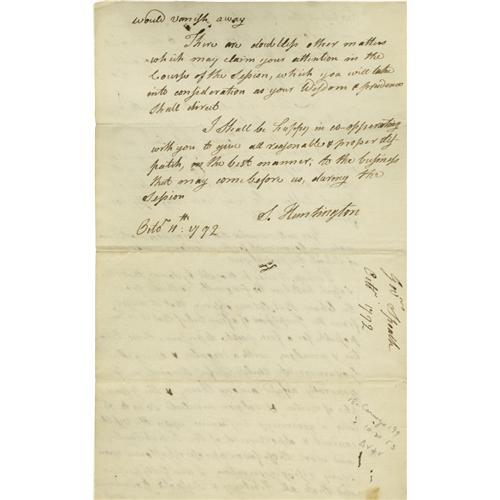 would vanish away
There are doubtless other matters
which may claim your attention in the
Course of the Session, which you will take
into consideration as your Wisdom & prudence
Shall direct
I Shall be happy in co-opperating
with you to give all reasonable & proper dis
patch, in the best manner, to the business
that may come before us, during the
Session
S. Huntington
Octor 11th 1792
Govrs Speech
Octr 1792